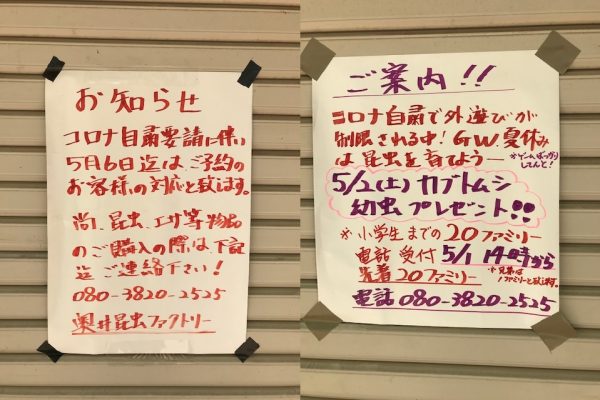 お知らせ
コロナ自粛要請に伴い
5月6日迄は、ご予約の
お客様の対応と致します。
尚、昆虫、エサ等物品
のご購入の際は下記
迄ご連絡下さい!
080-3820-2525
奥井昆虫ファクトリー
ご案内!!
コロナ自粛で外遊びが
制限される中!GW、夏休み
は昆虫を育てよう―
※ゲームばっかり
してんと!
5/2(土)カブトムシ
幼虫プレゼント!!
※小学生までの20ファミリー
電話受付 5/1 14時から
先着20ファミリー
※兄弟は
1ファミリーと致します。
電話080-3820-2525